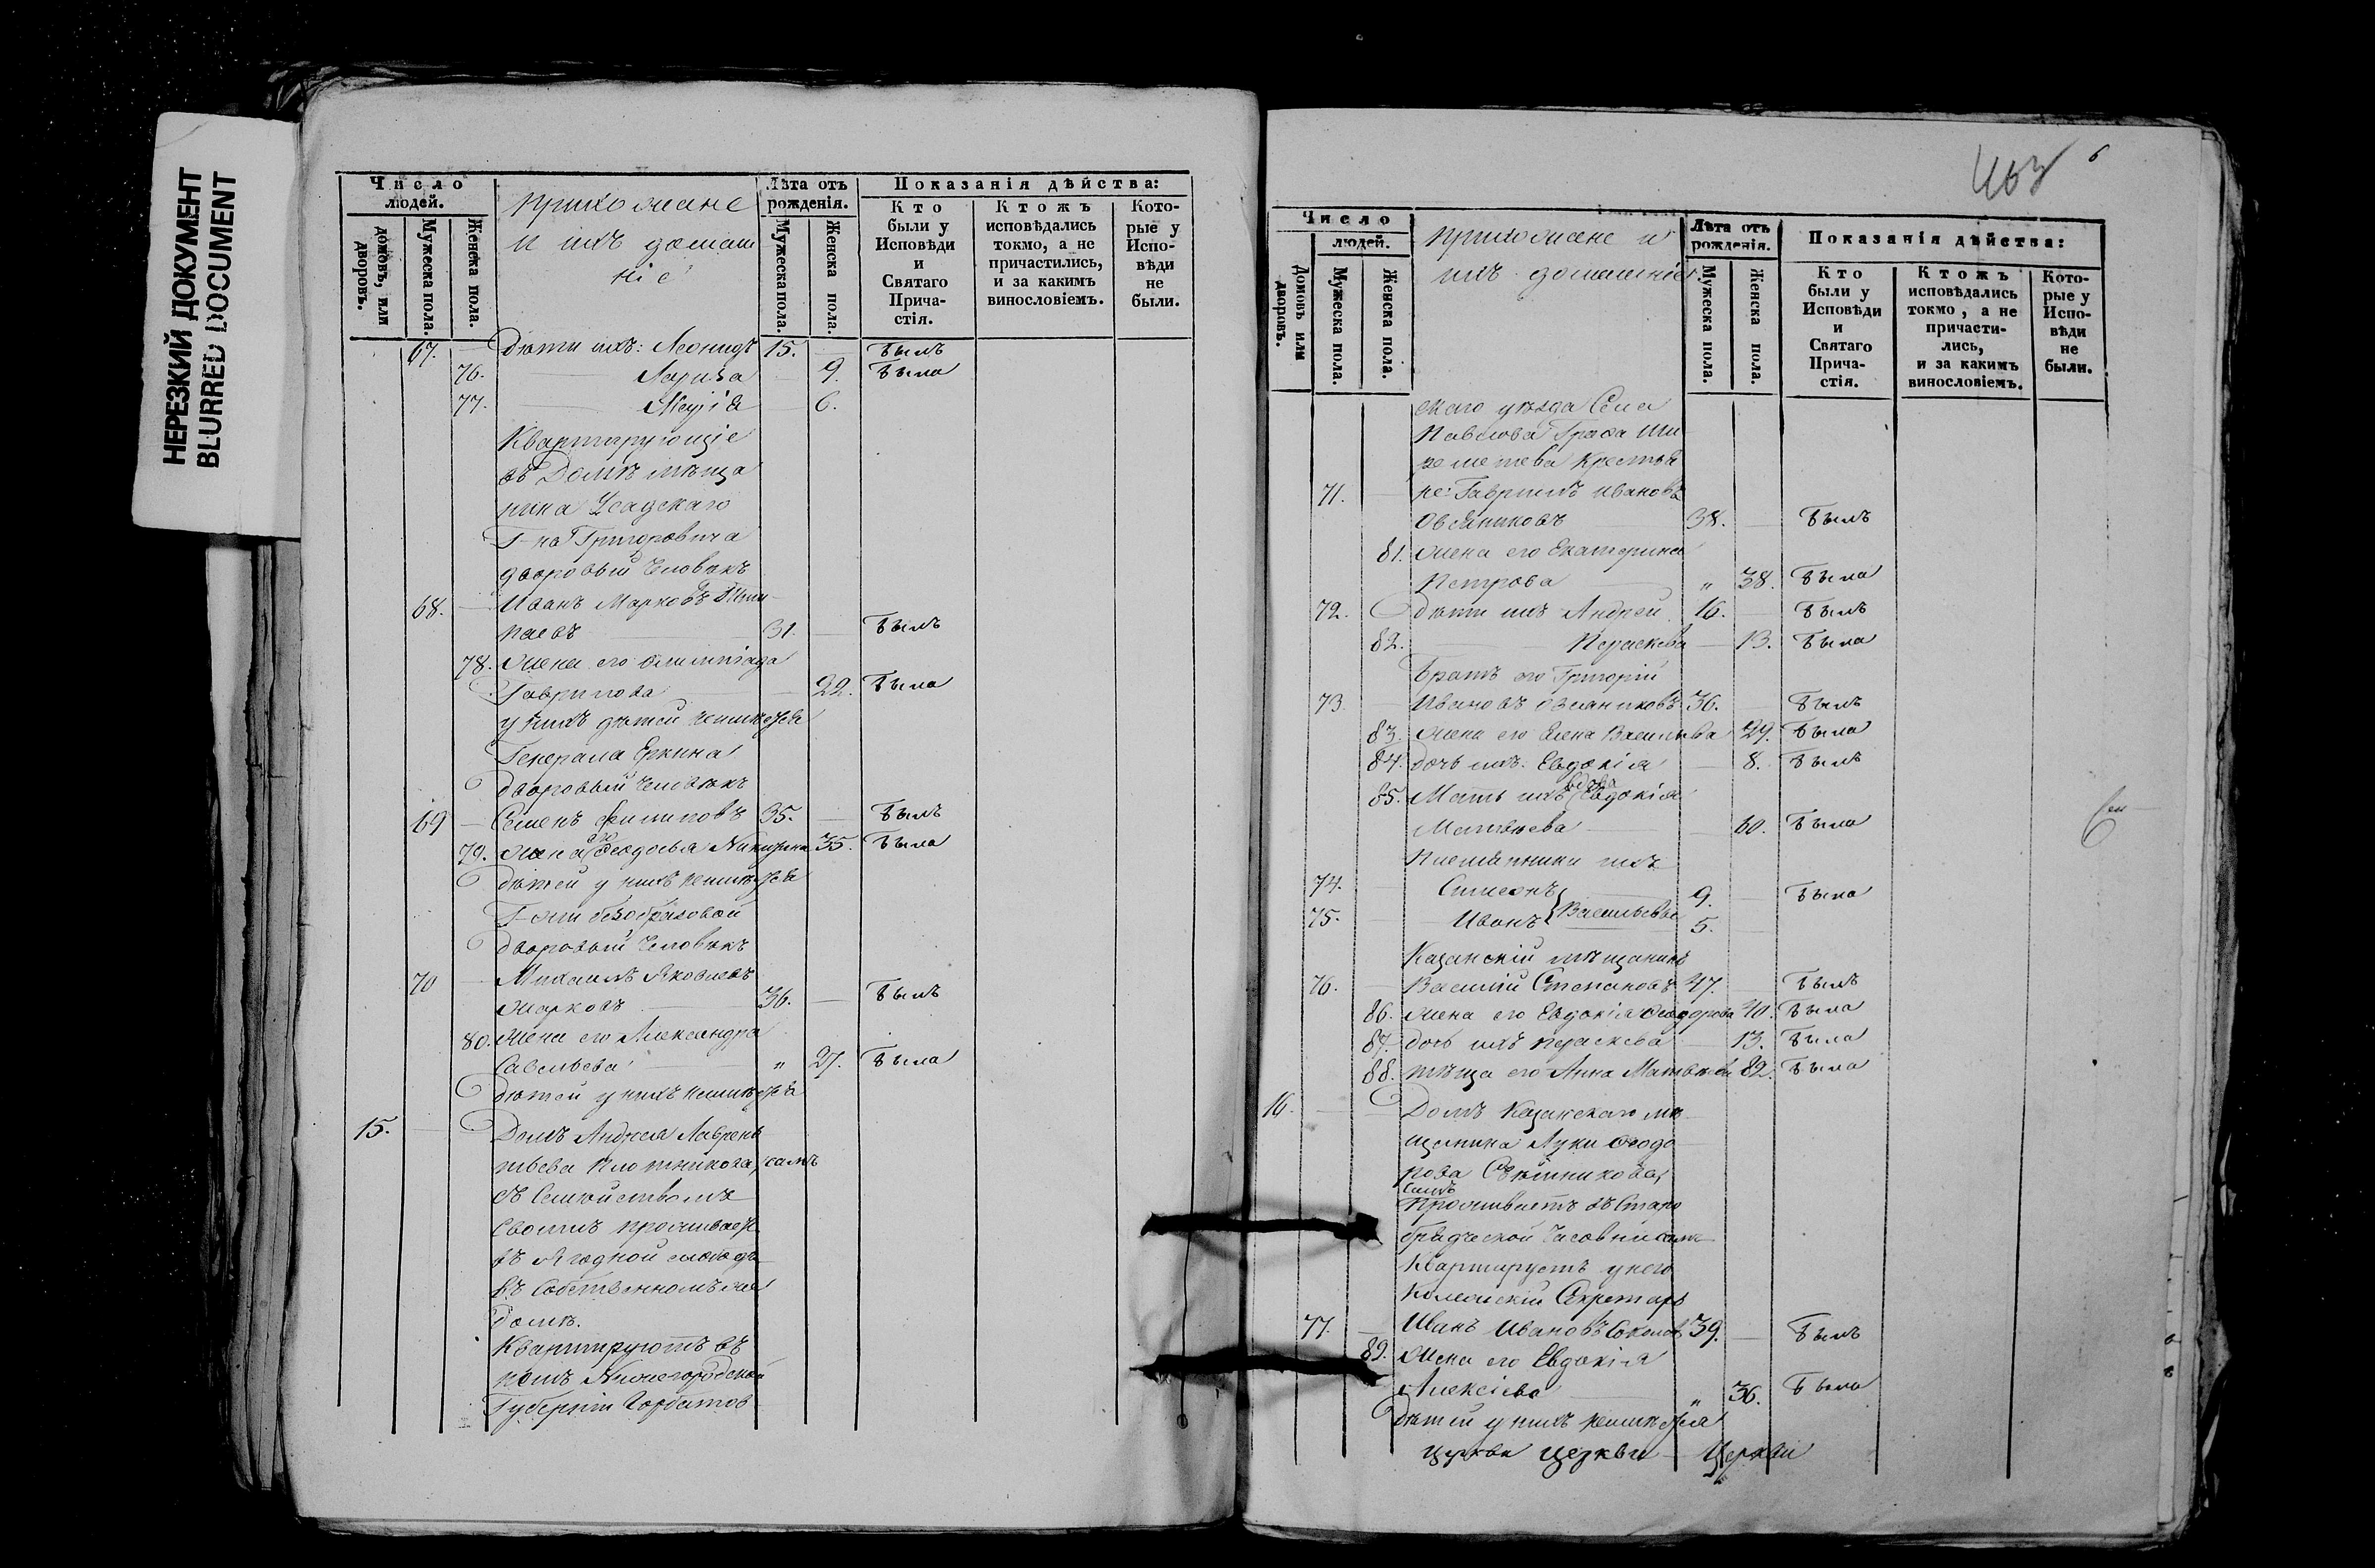 НЕРЕЗКИЙ ДОКУМЕНТ
BLURRED DOCUMENT
Число
людей.
домовъ, или дворовъ.
Мужеска пола.
Женска пола.
Прихожане
и ихъ домаш
ніе
Лѣта отъ
рожденія.
Мужеска пола.
Женска пола.
Показанія дѣйства:
Кто были у Исповѣди и Святаго Прича- стія.
Ктожъ исповѣдались токмо, а не причастились, и за какимъ винословіемъ.
Кото- рые у Испо- вѣди не были.
67. Дѣти ихъ: Леонидъ 15. Былъ
76. Лариса 9. Была
77. Марія 6.
Квартирующіе
въ Домѣ мѣща
нина Усадскаго
Г-на Григоровича
дворовый человѣкъ
68. Иванъ Марковъ
наевъ 31. Былъ
78. Жена его Олимпіада
Гаврилова 22. Была
у нихъ дѣтей неимѣется
Генерала Еркина
дворовый человѣкъ
69 Семенъ Филиповъ 35. Былъ
79. Жена его Феодосья 35. Была
Дѣтей у нихъ неимѣется
Г-жи безобразовой
Дворовый человѣкъ
70 Михаилъ Яковлевъ
Жарковъ 36. Былъ
80. Жена его Александра
Савельева " 27. Была
Дѣтей у нихъ неимѣется
15. Домъ Андрея Лаврень
тьева Плотникова, самъ
съ Семействомъ
своимъ проживаетъ
въ Ягодной слободѣ
въ собственномъ
домѣ.
Квартируютъ въ
немъ Нижегородской
Губерніи Горбатов
463
6
Число
людей.
Домовъ или дворовъ.
Мужеска пола.
Женска пола.
Прихожане и
ихъ домашніе.
Лѣта отъ
рожденія.
Мужеска пола.
Женска пола.
Показанія дѣйства:
Кто были у Исповѣди и Святаго Прича- стія.
Ктожъ исповѣдались токмо, а не причасти- лись, и за какимъ винословіемъ.
Кото- рые у Испо- вѣди не были.
скаго уѣзда Села
Павлова Графа Ши
реметева Крестья
71. не: Гаврилъ Ивановъ
Овсяниковъ 38. Былъ
81. Жена его Екатерина
Петрова " 38. Была
72. Дѣти ихъ Андрей 16. Былъ
82. Параскева 13. Была
Братъ его Григорій
73. Ивановъ Овсяниковъ 36. Былъ
83. Жена его Елена Васильева 29. Была
84. Дочь ихъ Евдокія 8. Былъ
85. Мать ихъ вдова Евдокія
Матвѣева 60. Была
Племянники ихъ
74. Симеонъ 9. Была
75. Иванъ Васильевы 5.
Казанскій мѣщанинъ
76. Василій Степановъ 47. Былъ
86. Жена его Евдокія Феодорова 40. Была
87. Дочь ихъ Параскева 13. Была
88. тѣща его Анна Матвѣева 82. Была
16. Домъ Казанскаго мѣ
щанина Луки Феодо
рова
самъ
Проживаетъ въ Старо
брядческой Часовни
Квартируетъ у него
Колежскій Секретарь
77. Иванъ Ивановъ Соколовъ 39. Былъ
89. Жена его Евдокія
Алексіева " 36. Была
Дѣтей у нихъ неимѣется
Церкви Церкви Церкви